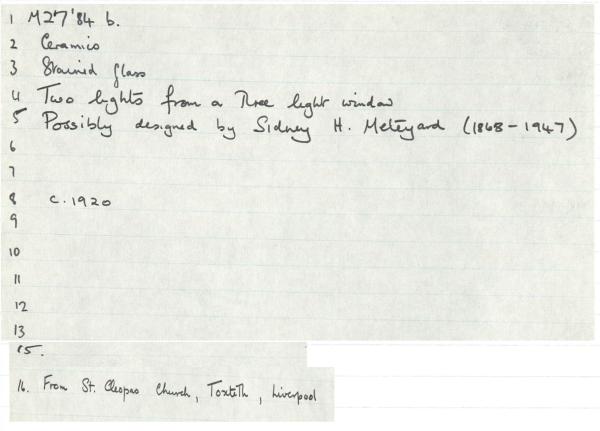 1 M27'84 b.
2 Ceramics
3 Stained glass
4 Two lights from a Three light window
5 Possibly designed by Sidney H. Meteyard (1868-1947)
6
7
8 c. 1920
9
10
11
12
13
15.
16. From St. Cleopas Church, Toxteth, Liverpool